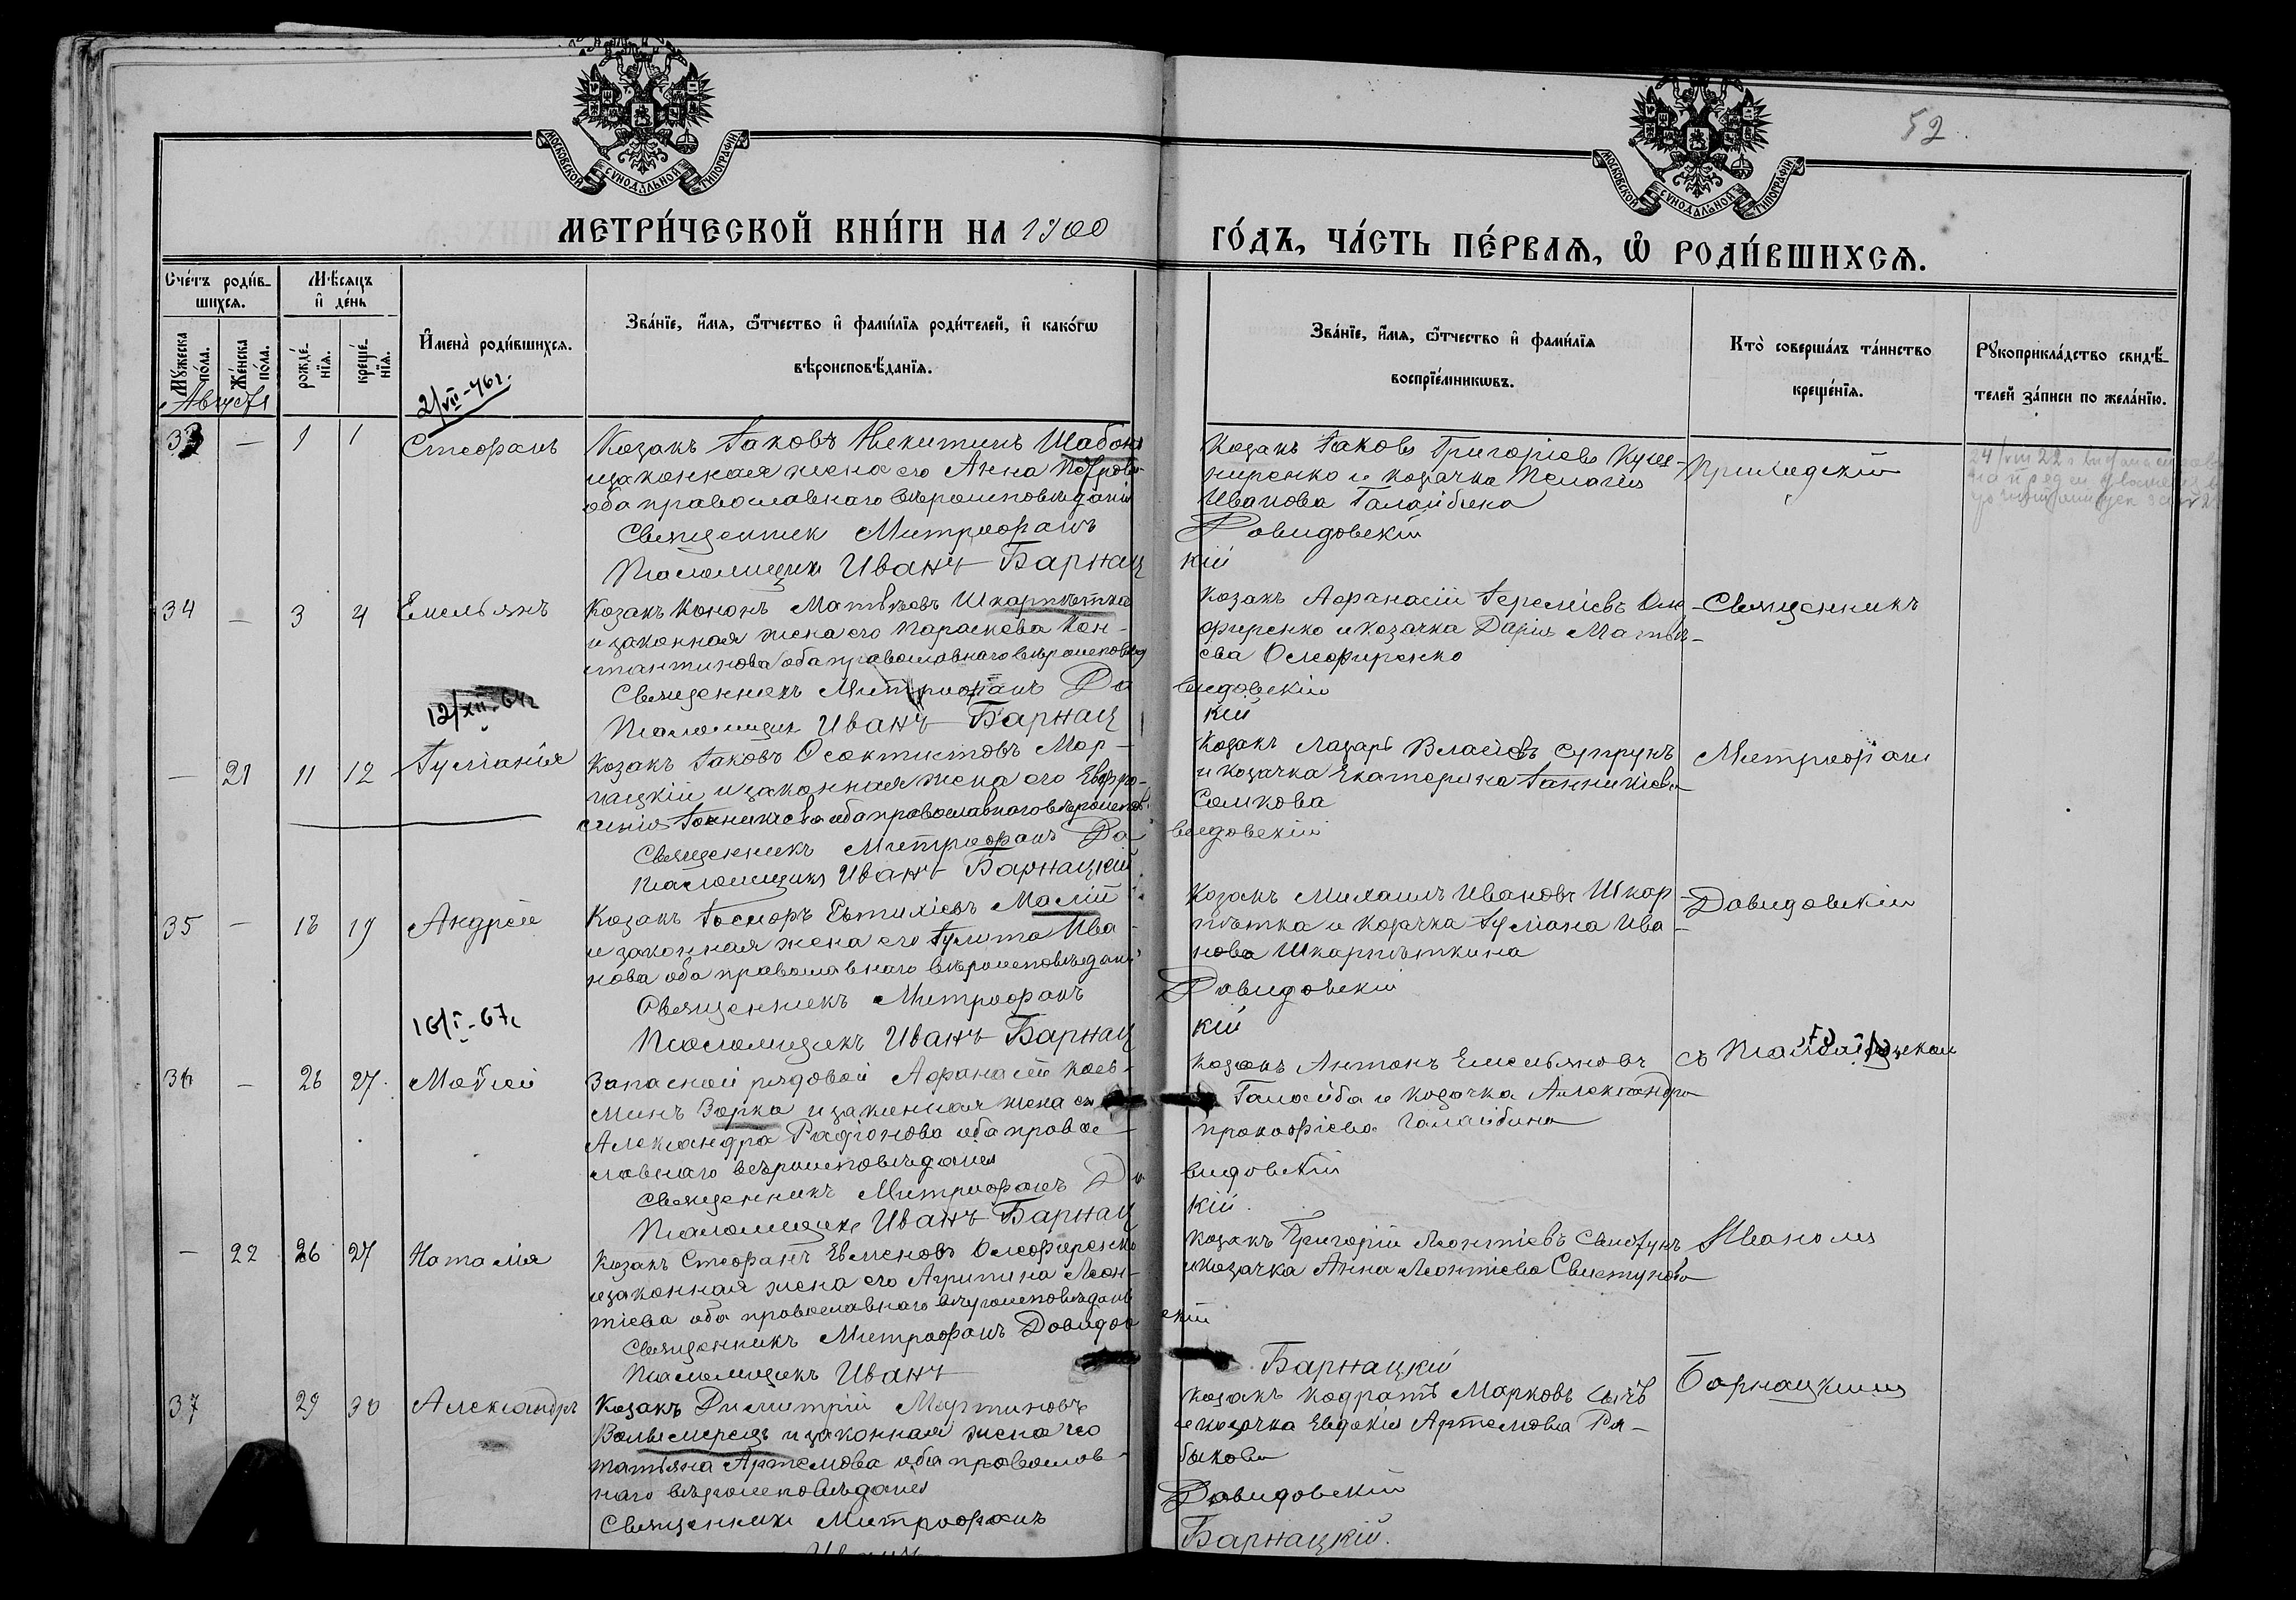 МОСКОВСКОЙ СУНОДАЛЬНОЙ ТИПОГРАФИИ
МОСКОВСКОЙ СУНОДАЛЬНОЙ ТИПОГРАФИИ
52
МЕТРИ́ЧЕСКОЙ КНИ́ГИ НА 1900
ГО́ДЪ, ЧА́СТЬ ПЕ́РВАѦ, Ѡ РОДИ́ВШИХСѦ.
Сче́тъ роди́в-
шихсѧ.
Мѣ́сѧцъ
и де́нь
Му́жеска по́ла.
Же́нска по́ла.
рожде́-
нїѧ.
креще́-
нїѧ.
И҆мена̀ роди́вшихсѧ.
Зва́нїе, и҆́мѧ, ѻ҆́тчество и҆ фами́лїѧ роди́телей, и҆ како́гѡ
вѣроисповѣ́данїѧ.
Зва́нїе, и҆́мѧ, ѻ҆́тчество и҆ фами́лїѧ
воспрїе́мникѡвъ.
Кто̀ соверша́лъ та́инство
креще́нїѧ.
Рꙋкоприкла́дство свидѣ́-
телей за́писи по жела́нїю.
Августъ
2/VII-46г.
33 — 1 1 Стефанъ
Козакъ Іаковъ Никитинъ Шабон
и законная жена его Анна Петрова
оба православнаго вѣроисповѣданія
Священник Митрофанъ Давидовскій
Псаломщикъ Иванъ Барнацкій
Козакъ Іаковъ Григоріевъ Куш-
ниренко и козачка Пелагія
Иванова Галайбина
Приходскій
34 — 3 4 Емельянъ
Козакъ Кононъ Матѣевъ Шкарпѣтка
и законная жена его Параскева Кон-
стантинова оба православнаго вѣроисповѣд
Священникъ Митрофанъ Давидовскій
Псаломщикъ Иванъ Барнацкій
Козакъ Афанасій Іереміевъ Оле-
фиренко и козачка Дарія Матѣ-
ева Олефиренко
Священникъ
12/XII-64г
— 21 11 12 Іуліанія
Козакъ Іаковъ Феоктистовъ Мор-
нацкій и законная жена его Евфро-
синія Іоаникіева оба православнаго вѣроисповѣ
Священникъ Митрофанъ Давидовскій
Псаломщикъ Иванъ Барнацкій
Козакъ Лазарь Власіевъ Супрунъ
и козачка Екатерина Іанникіева
Сомкова
Митрофанъ
35 — 18 19 Андрей
Козакъ Іосифъ Евтихіевъ Малій
и законная жена его Іулита Ива-
нова оба православнаго вѣроисповѣдан
Священникъ Митрофанъ Давидовскій
Псаломщикъ Иванъ Барнацкій
Козакъ Михаилъ Ивановъ Шкар-
пѣтка и козачка Іуліана Ива-
нова Шкарпѣткина
Давидовскій
16/I-67г
36 — 26 27 Мойсей
Запасной рядовой Афанасій Косъ-
минъ Зорка и законная жена его
Александра Радіонова оба право-
славнаго вѣроисповѣданія
Священникъ Митрофанъ Давидовскій
Псаломщикъ Иванъ Барнацкій
Козакъ Антонъ Емельяновъ
Галайба и козачка Александра
Прокофіева Галайбина
съ Псаломщикомъ
— 22 26 27 Наталія
Козакъ Стефанъ Евменовъ Олефиренко
и законная жена его Агрипина Леон-
тіева оба православнаго вѣроисповѣданія
Священникъ Митрофанъ Давидовскій
Псаломщикъ Иванъ Барнацкій
Козакъ Григорій Леонтіевъ Свистунъ
и козачка Анна Леонтіева Свистунова
Иваномъ
37 29 30 Александръ
Козакъ Димитрій Мартиновъ
и законная жена его
Татьяна Артемова оба православ-
наго вѣроисповѣданія
Священникъ Митрофанъ Давидовскій
Иванъ Барнацкій.
Козакъ Кодратъ Марковъ Сычъ
и козачка Евдокія Артемова Ря-
быкова
Барнацкимъ